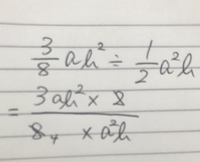 3/8 ab² ÷ 1/2 a²b
= 3ab² × 8 / 8₄ × a²b